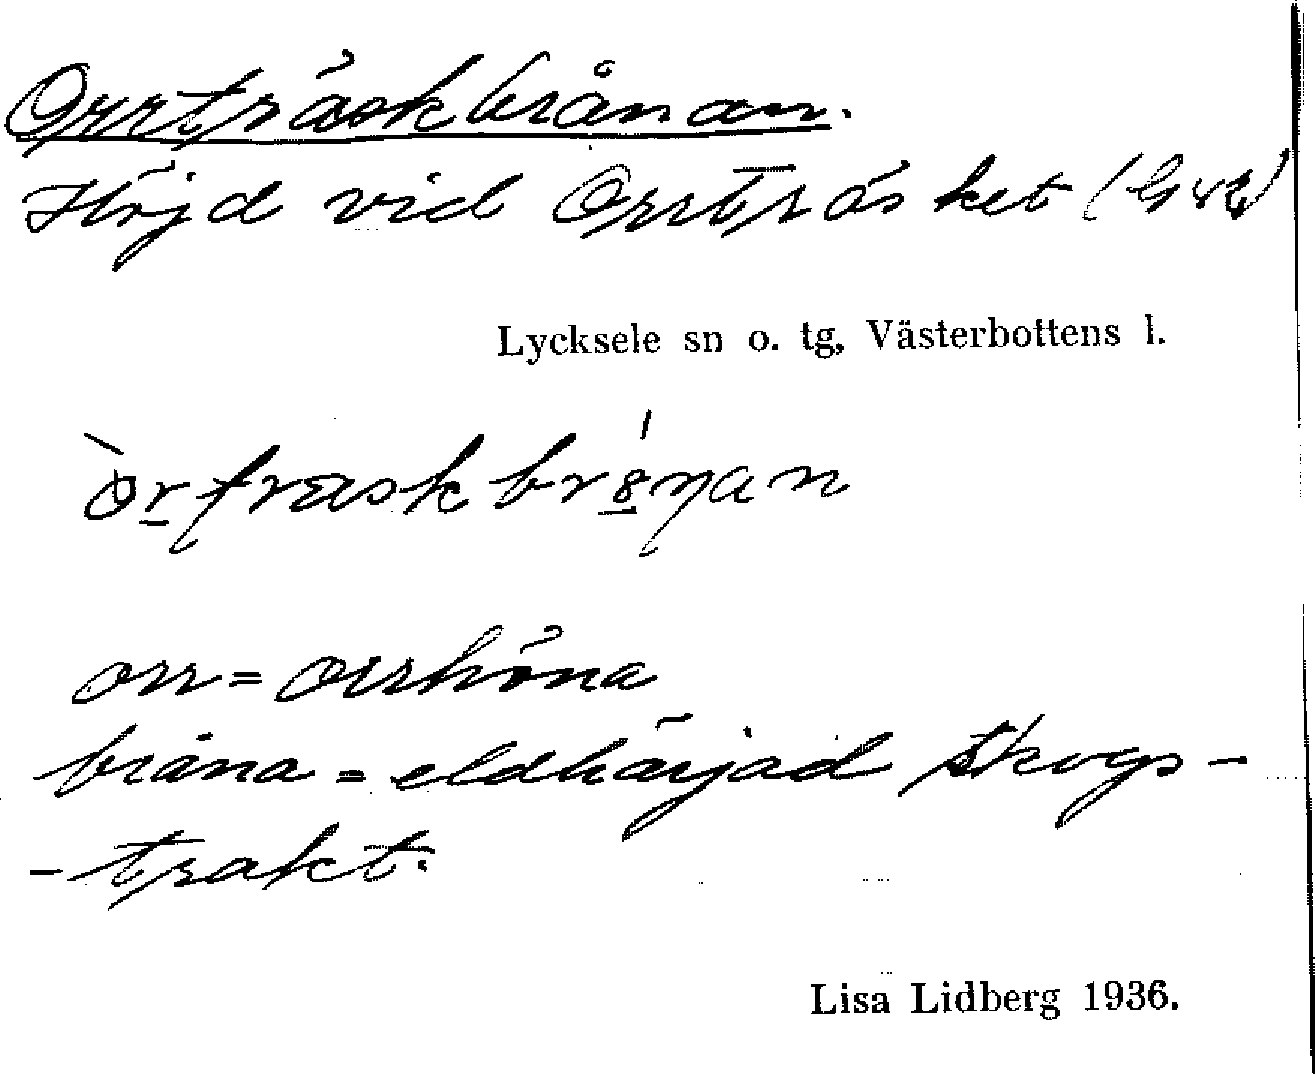 Orrträskbrånan.
Höjd vid Orrträsket (
Lycksele sn o. tg, Västerbottens l.
orr = orrhöna
bråna = eldhärjad skogs-
-trakt.
Lisa Lidberg 1936.